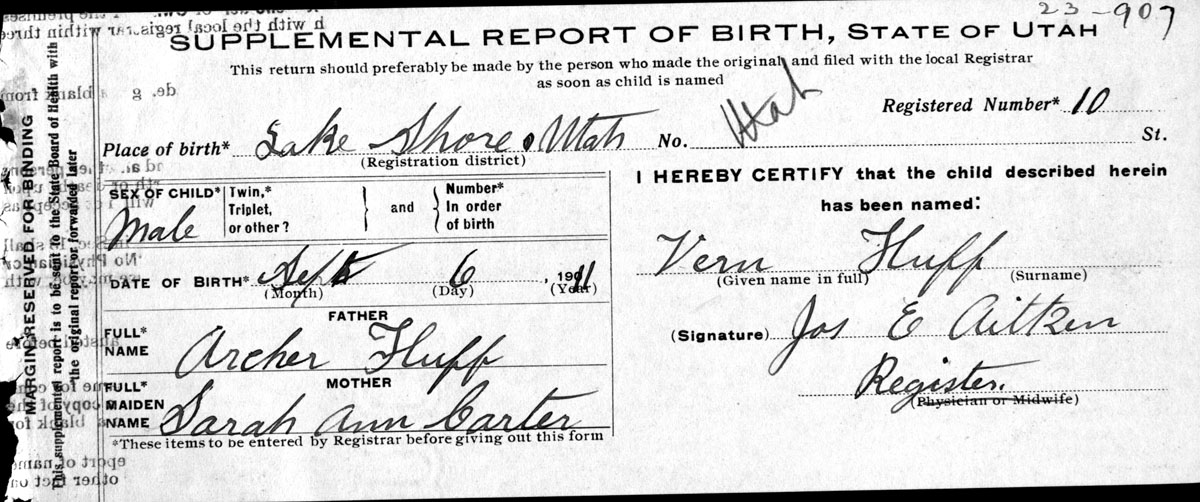 23-907
SUPPLEMENTAL REPORT OF BIRTH, STATE OF UTAH
This return should preferably be made by the person who made the original and filed with the local Registrar
as soon as child is named
Registered Number* 10
Place of birth* Lake Shore, Utah No. Utah St.
(Registration district)
SEX OF CHILD* Male
Twin,*
Triplet,
or other?
and
Number*
In order
of birth
DATE OF BIRTH* Sept 6, 1911
(Month) (Day) (Year)
FATHER
FULL*
NAME Archer Huff
MOTHER
FULL*
MAIDEN
NAME Sarah Ann Carter
*These items to be entered by Registrar before giving out this form
I HEREBY CERTIFY that the child described herein
has been named:
Vern Huff
(Given name in full) (Surname)
(Signature) Jos E Aitken
Register.
(Physician or Midwife)
MARGIN RESERVED FOR BINDING
This supplemental report is to be sent to the State Board of Health with
the original report or forwarded later